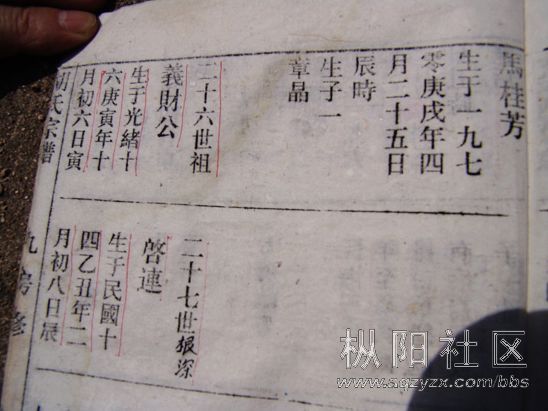 馬桂芳
生于一九七
零庚戌年四
月二十五日
辰時
生子一
章晶
二十六世祖
義財公
生于光緒十
六庚寅年十
月初六日寅
二十七世根深
啓連
生于民國十
四乙丑年二
月初八日辰
胡氏宗譜
九修
枞阳社区
www.aqzyzx.com/bbs